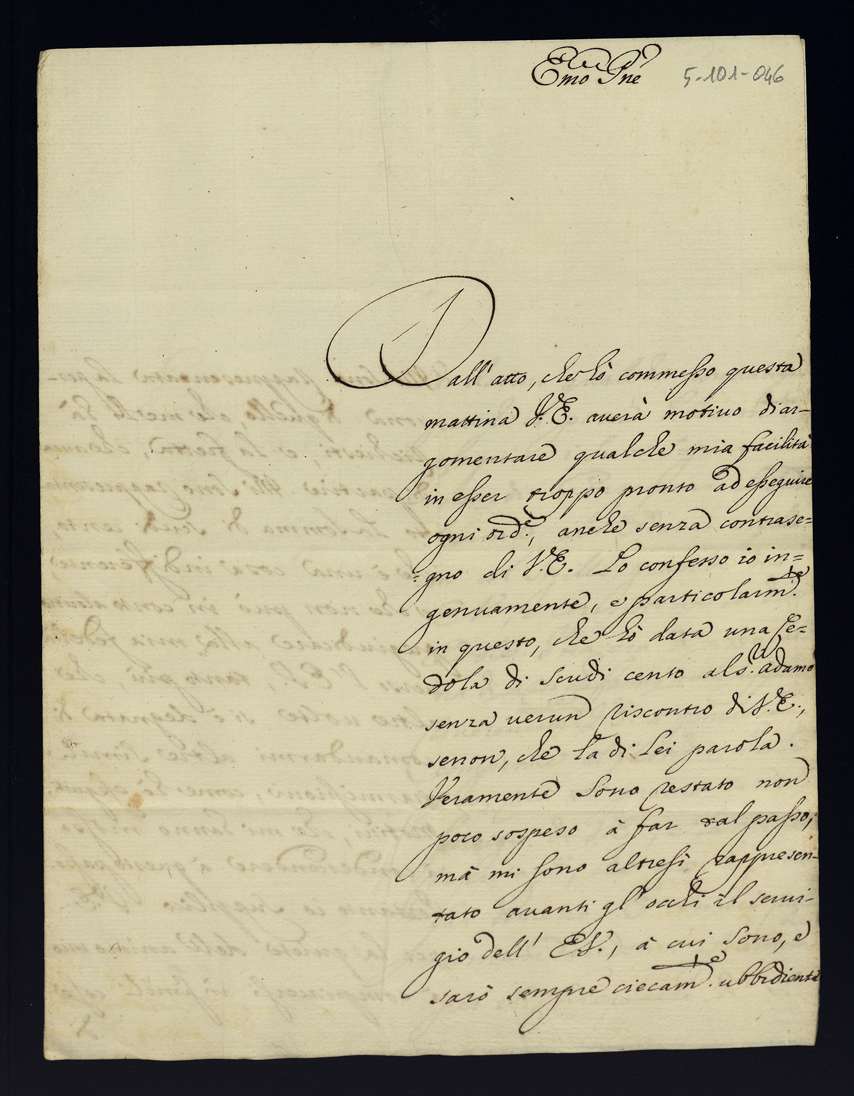 Emo Pne
5-101-046
Dall' atto, che hò commesso questa
mattina V.E. averà motivo di ar-
gomentare qualche mia facilità
in esser troppo pronto ad esseguire
ogni ord.e, anche senza contrase=
=gno di V.E. Lo confesso io in=
genuamente, e particolarm.te
in questo, che hò data una Ce=
dola di scudi cento al s.r Adamo
senza verun riscontro di V.E.,
senon, che la di Lei parola.
Veramente sono restato non
poco sospeso à far tal passo,
mà mi sono altresì rappresen-
tato avanti gl' occhi il servi-
gio dell' E.V., à cui sono, e
sarò sempre ciecam.te ubbidiente